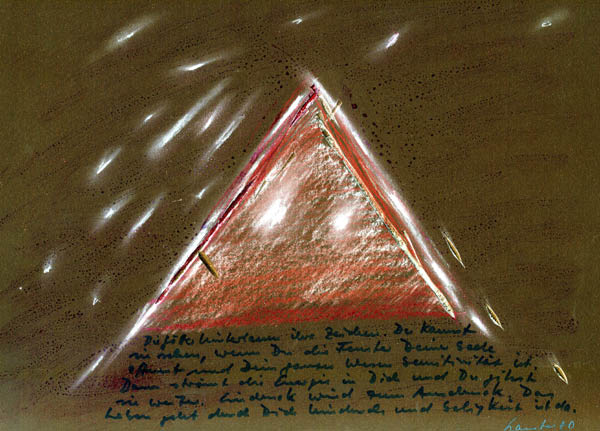 hinterlassen ihre Zeichen. Du kannst
sie sehen, wenn Du die Fenster Deiner Seele
öffnest und Dein ganzes Wesen Sensitivität ist.
Dann strömt die Energie in Dich und Du gibst
sie weiter. Eindruck wird zum Ausdruck. Das
Leben geht durch Dich hindurch und Seligkeit ist da.